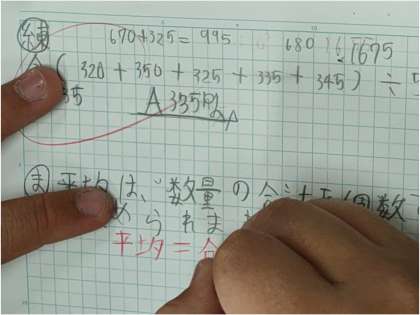 練 670+325=995 680 1675
(320+350+325+335+345)÷5
35 A 335円
ま 平均は、数量の合計を個数で
められま
平均=合